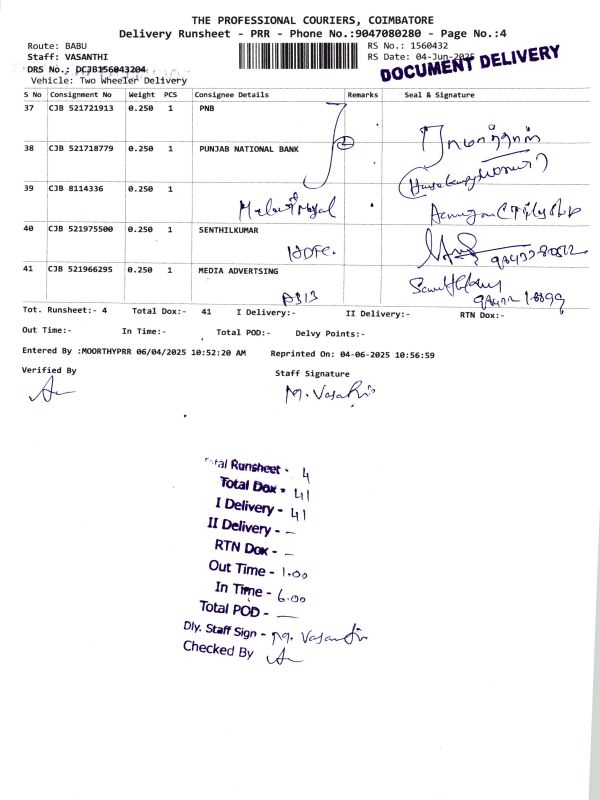 THE PROFESSIONAL COURIERS, COIMBATORE
Delivery Runsheet - PRR - Phone No.:9047080280 - Page No.:4
Route: BABU
RS No.: 1560432
Staff: VASANTHI
RS Date: 04-Jun-2025
DRS No.: DCJB156043204
DOCUMENT DELIVERY
Vehicle: Two Wheeler Delivery
S No Consignment No Weight PCS Consignee Details Remarks Seal & Signature
37 CJB 521721913 0.250 1 PNB
38 CJB 521718779 0.250 1 PUNJAB NATIONAL BANK
39 CJB 8114336 0.250 1
40 CJB 521975500 0.250 1 SENTHILKUMAR
HDFC.
41 CJB 521966295 0.250 1 MEDIA ADVERTSING
Tot. Runsheet:- 4 Total Dox:- 41 I Delivery:- II Delivery:- RTN Dox:-
Out Time:- In Time:- Total POD:- Delvy Points:-
Entered By :MOORTHYPRR 06/04/2025 10:52:20 AM Reprinted On: 04-06-2025 10:56:59
Verified By
Staff Signature
M. Vasanthi
Total Runsheet - 4
Total Dox - 41
I Delivery - 41
II Delivery - –
RTN Dox - –
Out Time - 1.00
In Time - 6.00
Total POD - —
Dly. Staff Sign - M. Vasanthi
Checked By